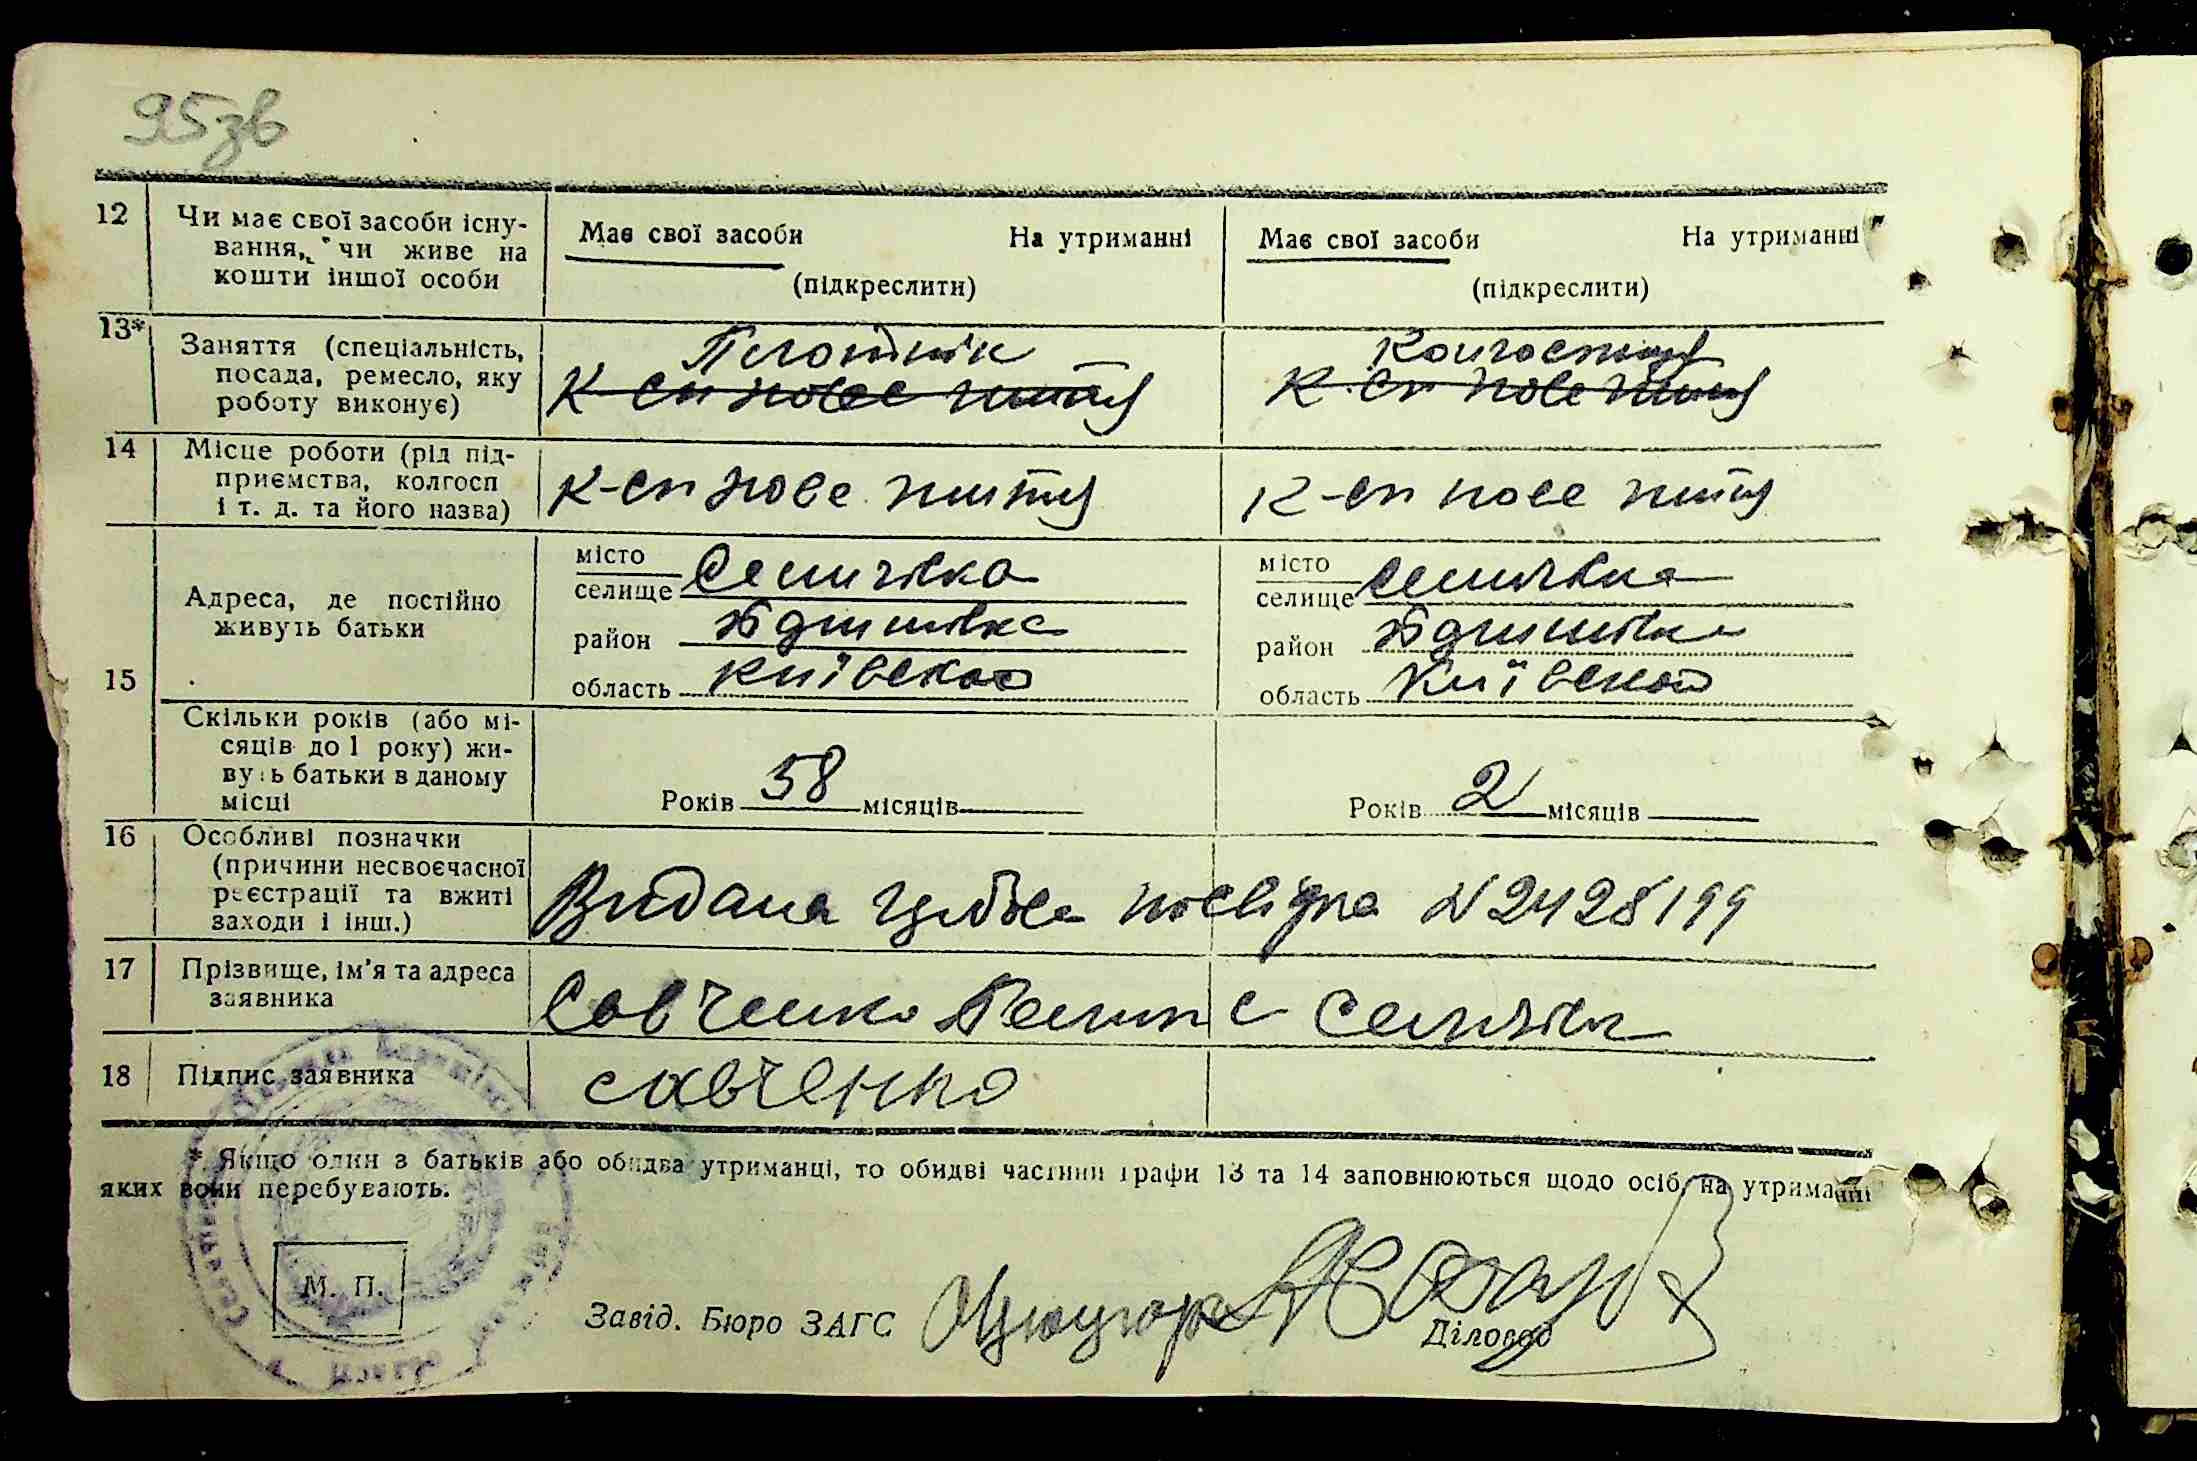 95зв
12 Чи має свої засоби існу-
вання, чи живе на
кошти іншої особи
Має свої засоби На утриманні
(підкреслити)
Має свої засоби На утриманні
(підкреслити)
13* Заняття (спеціальність,
посада, ремесло, яку
роботу виконує)
Плотнік
К-сп нове життя
Колгоспниця
К-сп нове життя
14 Місце роботи (рід під-
приємства, колгосп
і т. д. та його назва)
К-сп нове життя
К-сп нове життя
15 Адреса, де постійно
живуть батьки
місто
селище Семичівка
район
область Київской
місто
селище Семичівка
район
область Київской
Скільки років (або мі-
сяців до 1 року) жи-
вуть батьки в даному
місці
Років 58 місяців
Років 2 місяців
16 Особливі позначки
(причини несвоєчасної
реєстрації та вжиті
заходи і інш.)
Видана посвідка N 2428199
17 Прізвище, ім'я та адреса
заявника
Савченко с Семичівка
18 Підпис заявника
савченко
* Якщо один з батьків або обидва утриманці, то обидві частини графи 13 та 14 заповнюються щодо осіб, на утриманні
яких вони перебувають.
М. П.
Завід. Бюро ЗАГС
Діловод